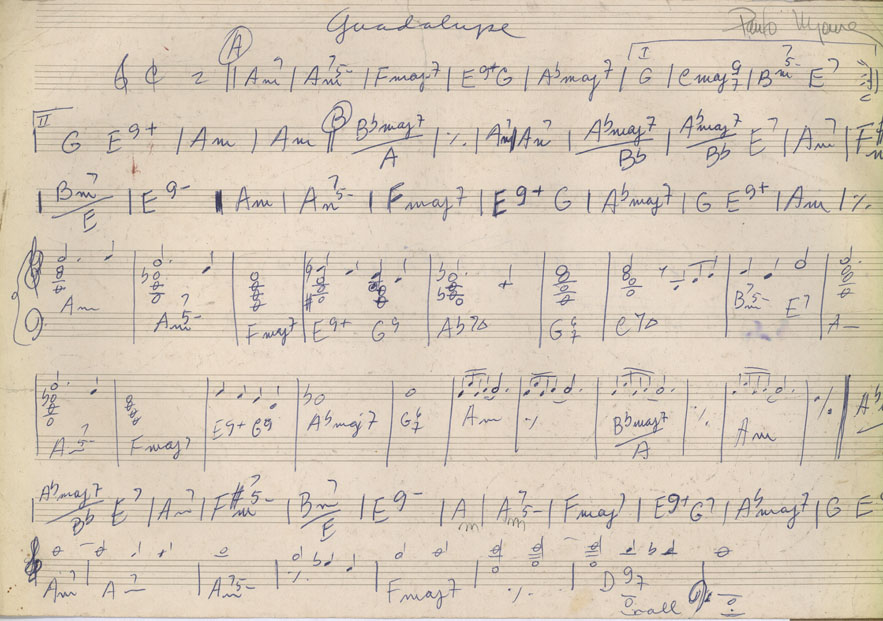 Guadalupe
A | Am7 | Am7 5- | Fmaj7 | E9+ G | Abmaj7 | I G | Cmaj 9 7 | Bm7 5- E7
II G E9+ | Am | Am B Bbmaj7/A | ./. | Am7 | Am7 | Abmaj7/Bb | Abmaj7/Bb E7 | Am7 | F#m
| Bm7/E | E9- | Am | Am7 5- | Fmaj7 | E9+ G | Abmaj7 | G E9+ | Am | ./.
Am | Am7 5- | Fmaj7 | E9+ G9 | Ab7Δ | G 6 7 | C7Δ | Bm7 5- E7 | A-
A-7 5- | Fmaj7 | E9+ G9 | Abmaj7 | G 6 7 | Am | ./. | Bbmaj7/A | ./. | Am | ./. | Ab
| Abmaj7/Bb E7 | Am7 | F#m7 5- | Bm7/E | E9- | Am | Am7 5- | Fmaj7 | E9+ G7 | Abmaj7 | G E9
Am7 | A-7 | Am7 5- | ./. | Fmaj7 | ./. | D 9 7